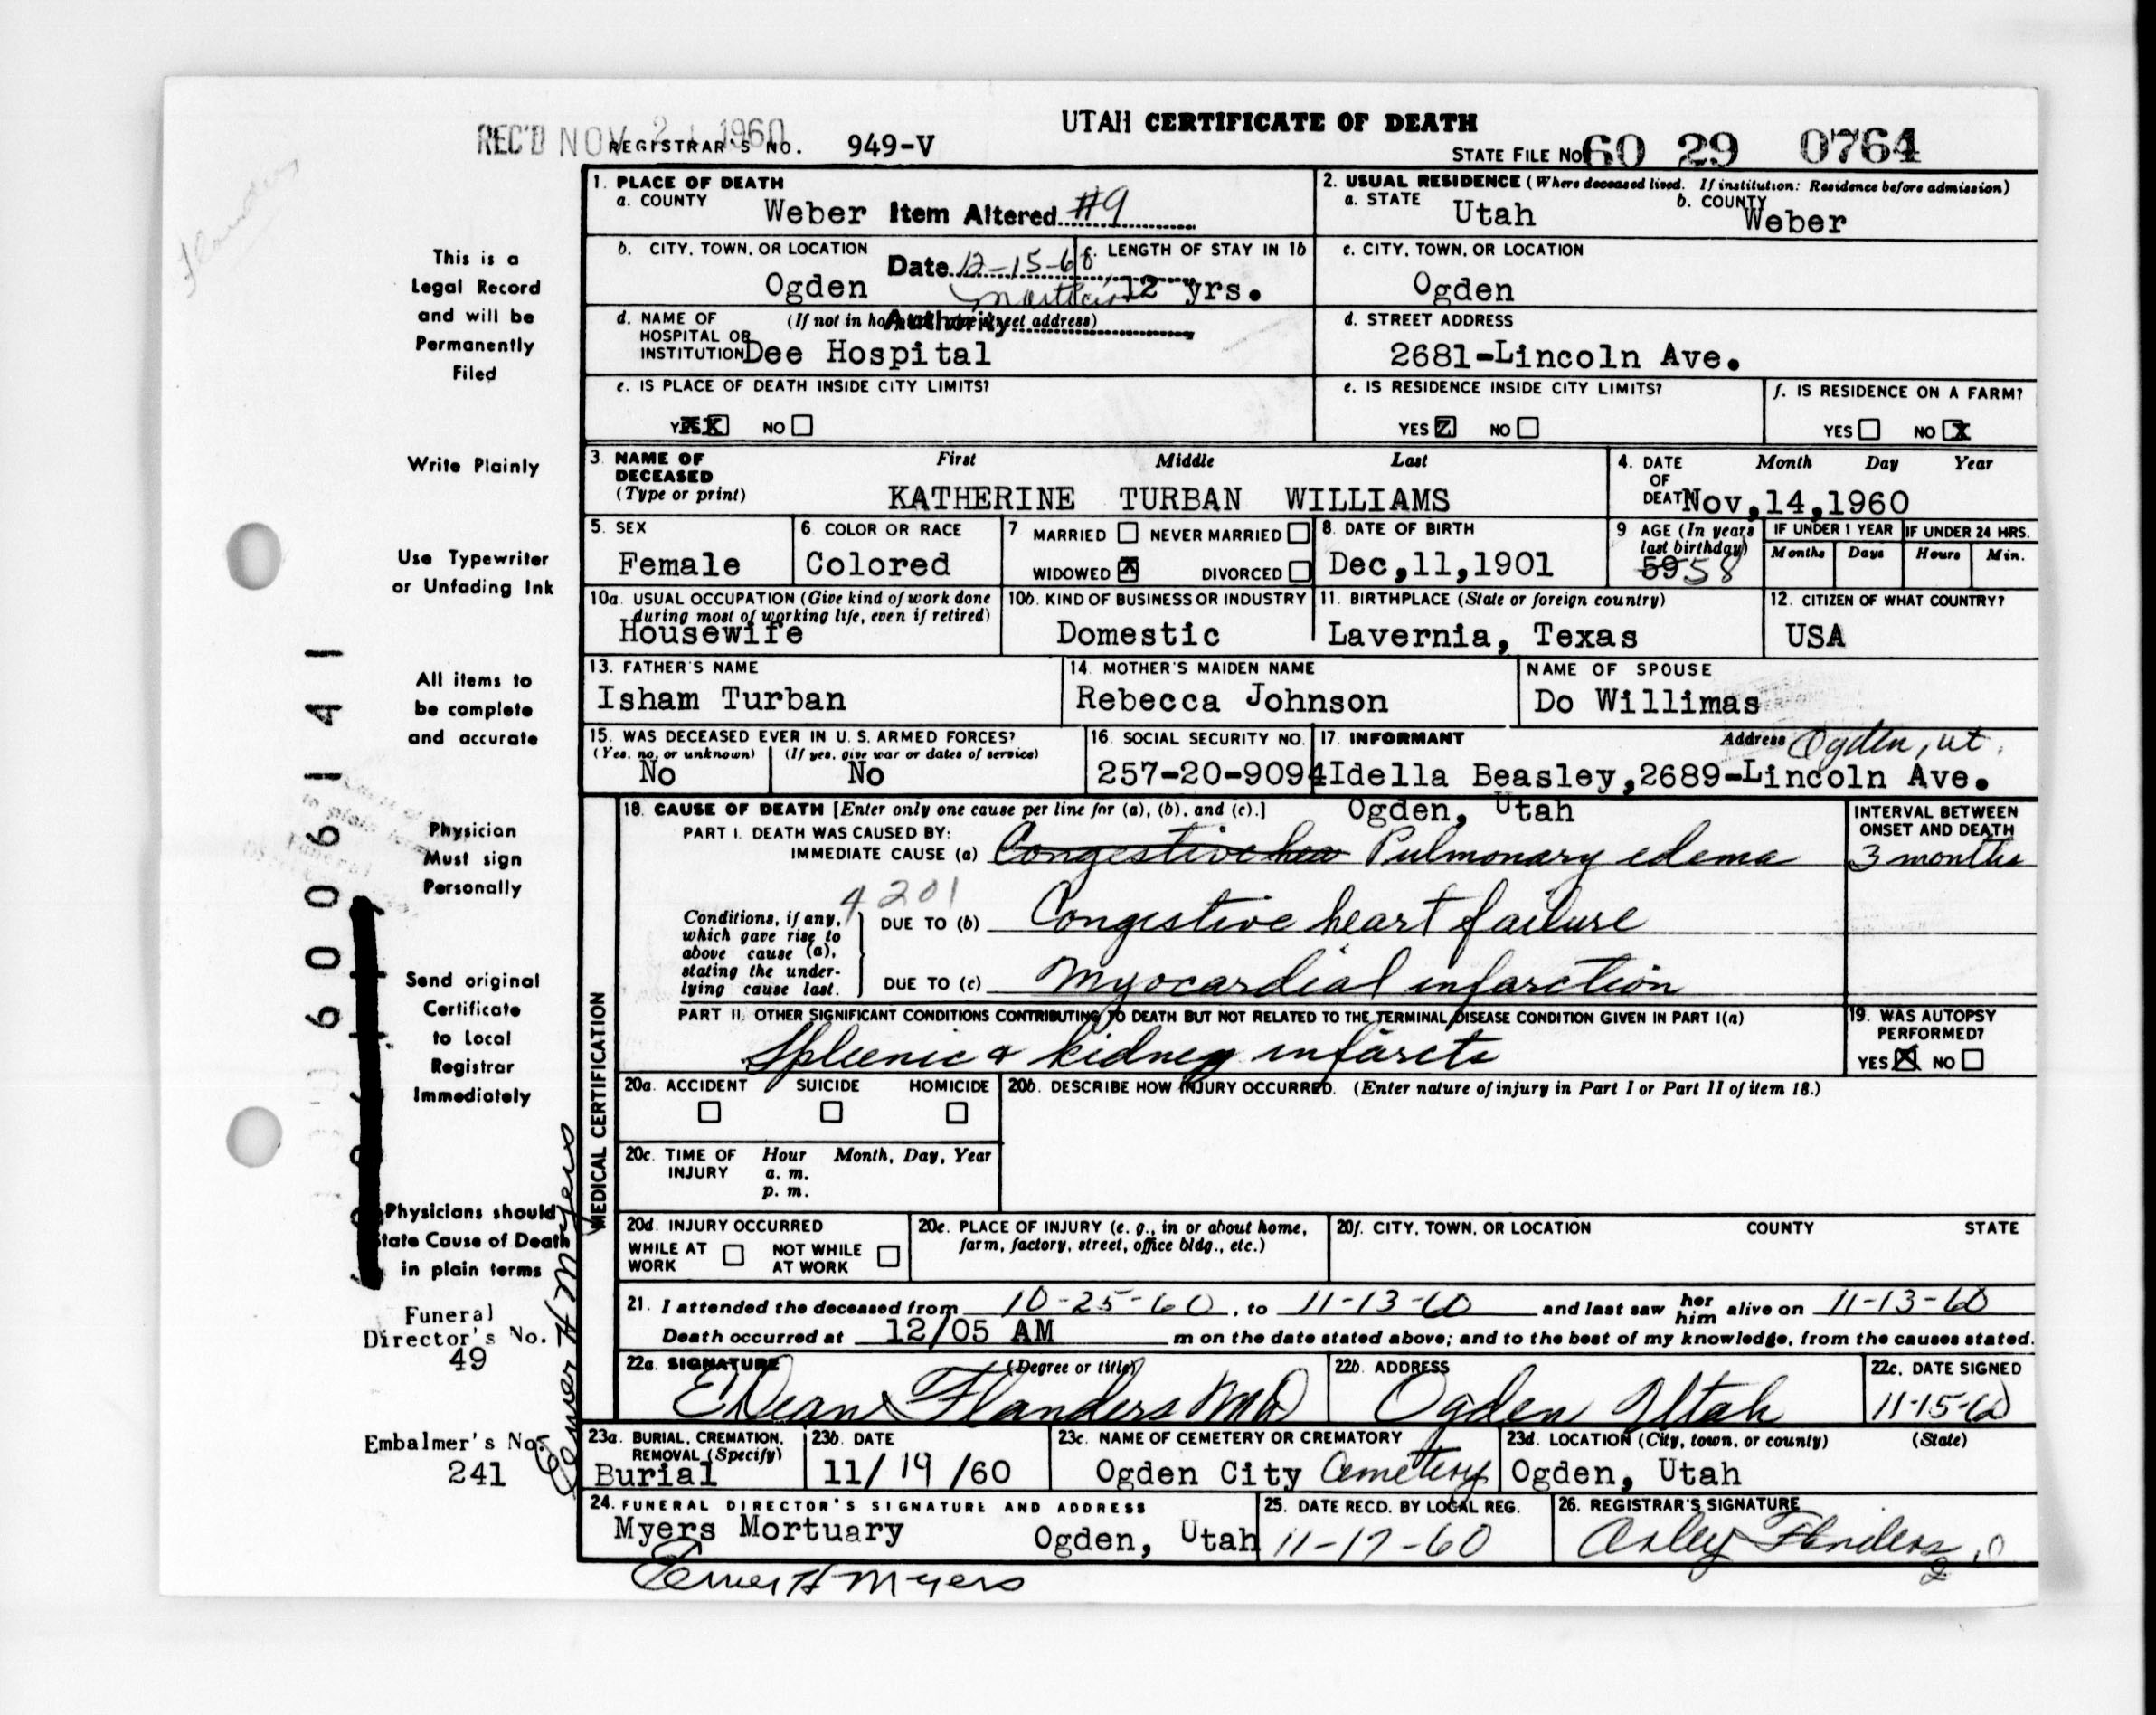 UTAH CERTIFICATE OF DEATH
REC'D NOV 2 1960
REGISTRAR'S NO. 949-V
STATE FILE No. 60 29 0764
1. PLACE OF DEATH
a. COUNTY Weber
Item Altered #9
2. USUAL RESIDENCE (Where deceased lived. If institution: Residence before admission)
a. STATE Utah
b. COUNTY Weber
b. CITY, TOWN, OR LOCATION Ogden
Date 12-15-68
c. LENGTH OF STAY IN 1b 12 yrs.
c. CITY, TOWN, OR LOCATION
Ogden
d. NAME OF HOSPITAL OR INSTITUTION (If not in hospital, give street address)
Authority
Dee Hospital
d. STREET ADDRESS
2681-Lincoln Ave.
e. IS PLACE OF DEATH INSIDE CITY LIMITS?
YES X NO
e. IS RESIDENCE INSIDE CITY LIMITS?
YES NO
f. IS RESIDENCE ON A FARM?
YES NO X
3. NAME OF DECEASED (Type or print)
First Middle Last
KATHERINE TURBAN WILLIAMS
4. DATE OF DEATH Month Day Year
Nov,14,1960
5. SEX
Female
6. COLOR OR RACE
Colored
7 MARRIED NEVER MARRIED
WIDOWED X DIVORCED
8. DATE OF BIRTH
Dec,11,1901
9 AGE (In years last birthday)
59 58
IF UNDER 1 YEAR IF UNDER 24 HRS.
Months Days Hours Min.
10a. USUAL OCCUPATION (Give kind of work done during most of working life, even if retired)
Housewife
10b. KIND OF BUSINESS OR INDUSTRY
Domestic
11. BIRTHPLACE (State or foreign country)
Lavernia, Texas
12. CITIZEN OF WHAT COUNTRY?
USA
13. FATHER'S NAME
Isham Turban
14. MOTHER'S MAIDEN NAME
Rebecca Johnson
NAME OF SPOUSE
Do Willimas
15. WAS DECEASED EVER IN U. S. ARMED FORCES?
(Yes, no, or unknown) (If yes, give war or dates of service)
No No
16. SOCIAL SECURITY NO.
257-20-9094
17. INFORMANT Address Ogden, ut.
Idella Beasley,2689-Lincoln Ave.
Ogden, Utah
MEDICAL CERTIFICATION
18. CAUSE OF DEATH [Enter only one cause per line for (a), (b), and (c).]
INTERVAL BETWEEN ONSET AND DEATH
PART I. DEATH WAS CAUSED BY:
IMMEDIATE CAUSE (a) Congestive hea Pulmonary edema
3 months
4201
Conditions, if any, which gave rise to above cause (a), stating the underlying cause last.
DUE TO (b) Congestive heart failure
DUE TO (c) Myocardial infarction
PART II. OTHER SIGNIFICANT CONDITIONS CONTRIBUTING TO DEATH BUT NOT RELATED TO THE TERMINAL DISEASE CONDITION GIVEN IN PART I(a)
Spleenic & kidney infarcts
19. WAS AUTOPSY PERFORMED?
YES X NO
20a. ACCIDENT SUICIDE HOMICIDE
20b. DESCRIBE HOW INJURY OCCURRED. (Enter nature of injury in Part I or Part II of item 18.)
20c. TIME OF INJURY Hour Month, Day, Year
a. m.
p. m.
20d. INJURY OCCURRED
WHILE AT WORK NOT WHILE AT WORK
20e. PLACE OF INJURY (e. g., in or about home, farm, factory, street, office bldg., etc.)
20f. CITY, TOWN, OR LOCATION COUNTY STATE
21. I attended the deceased from 10-25-60, to 11-13-60 and last saw her him alive on 11-13-60
Death occurred at 12/05 AM m on the date stated above; and to the best of my knowledge, from the causes stated.
22a. SIGNATURE (Degree or title)
E Dean Flanders MD
22b. ADDRESS
Ogden Utah
22c. DATE SIGNED
11-15-60
23a. BURIAL, CREMATION, REMOVAL (Specify)
Burial
23b. DATE
11/19/60
23c. NAME OF CEMETERY OR CREMATORY
Ogden City Cemetery
23d. LOCATION (City, town, or county) (State)
Ogden, Utah
24. FUNERAL DIRECTOR'S SIGNATURE AND ADDRESS
Myers Mortuary Ogden, Utah
25. DATE RECD. BY LOCAL REG.
11-17-60
26. REGISTRAR'S SIGNATURE
H Myers
Flanders
This is a
Legal Record
and will be
Permanently
Filed
Write Plainly
Use Typewriter
or Unfading Ink
All items to
be complete
and accurate
Physician
Must sign
Personally
Send original
Certificate
to Local
Registrar
Immediately
Physicians should
State Cause of Death
in plain terms
Funeral
Director's No.
49
Embalmer's No.
241
H Myers
6006141